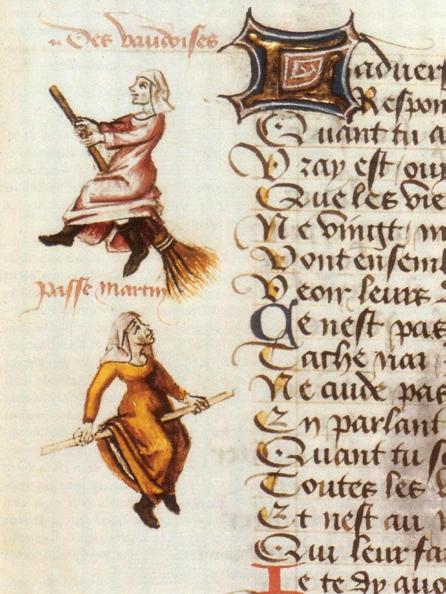 Des vaudoises
passe martin
Ladver
Respon
Quant tu a
Vray est ouy
Que les vie
Ne vingt
Vont ensem
Veoir leurs
Ce nest pas
Tache
Ne cuide pas
En parlant
Quant tu s
Toutes les
Et nest au
Qui leur fa
Ie te dy auo